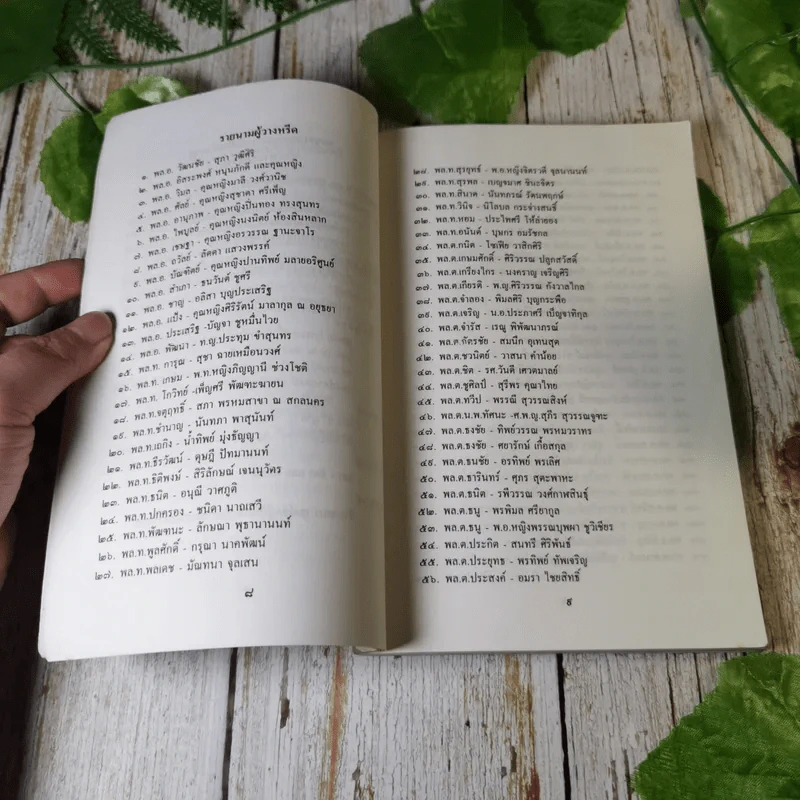 รายนามผู้วางหรีด
๑. พล.อ. วัฒนชัย - สุภา วุฒิศิริ
๒. พล.อ. อิสระพงศ์ หนุนภักดี และคุณหญิง
๓. พล.อ. วิมล - คุณหญิงมาลี วงศ์วานิช
๔. พล.อ. ศัลย์ - คุณหญิงสุชาดา ศรีเพ็ญ
๕. พล.อ. อานุภาพ - คุณหญิงปิ่นทอง ทรงสุนทร
๖. พล.อ. ไพบูลย์ - คุณหญิงนงนิตย์ ห้องสินหลาก
๗. พล.อ. เชษฐา - คุณหญิงอรวรรณ ฐานะจาโร
๘. พล.อ. ถวัลย์ - ลัดดา แสวงพรรค์
๙. พล.อ. บัณฑิตย์ - คุณหญิงปานทิพย์ มลายอริศูนย์
๑๐. พล.อ. สำเภา - ธนวันต์ ชูศรี
๑๑. พล.อ. ชาญ - อลิสา บุญประเสริฐ
๑๒. พล.อ. แป้ง - คุณหญิงศิริรัตน์ มาลากุล ณ อยุธยา
๑๓. พล.อ. ประเสริฐ -บัญจา ชูหมื่นไวย
๑๔. พล.อ. พัฒนา - ท.ญ.ประทุม ขำสุนทร
๑๕. พล.ท. การุณ - สุชา ฉายเหมือนวงศ์
๑๖. พล.ท. เกษม - พ.ท.หญิงภิญญานี ช่วงโชติ
๑๗. พล.ท. โกวิทย์ -เพ็ญศรี พัฒฑะฆายน
๑๘. พล.ท.จตุฤทธิ์ - สภา พรหมสาขา ณ สกลนคร
๑๙. พล.ท.ชำนาญ - นันทภา พาสุนันท์
๒๐. พล.ท.เถกิง - น้ำทิพย์ มุ่งธัญญา
๒๑. พล.ท.ธีรวัฒน์ - ดุษฎี ปัทมานนท์
๒๒. พล.ท.ธิติพงษ์ - สิริลักษณ์ เจนนุวัตร
๒๓. พล.ท.ธนิต - อนุณี วาศภูติ
๒๔. พล.ท.ปกครอง - ชนิดา นาถเสวี
๒๕. พล.ท.พัฒฑนะ - ลักษณา พุธานานนท์
๒๖. พล.ท.พูลศักดิ์ - กรุณา นาคพัฒน์
๒๗. พล.ท.พลเดช - มัณทนา จุลเสน
๘
๒๘. พล.ท.สุรยุทธ์ - พ.อ.หญิงจิตรวดี จุลานนท์
๒๙. พล.ท.สุรพล - เบญจมาศ ชินะจิตร
๓๐. พล.ท.สินาค - นันทกรณ์ รัตนพฤกษ์
๓๑. พล.ท.วินิจ - นิโลบล กระจ่างสนธิ์
๓๒. พล.ท.หอม - ประไพศรี ให้ลำยอง
๓๓. พล.ท.อนันต์ - บุษกร อมรัชกล
๓๔. พล.ต.กนิด - โซเฟีย วาสิกศิริ
๓๕. พล.ต.เกษมศักดิ์ - ศิริวรรณ ปลูกสวัสดิ์
๓๖. พล.ต.เกรียงไกร - นงคราญ เจริญศิริ
๓๗. พล.ต.เกียรติ - พ.ญ.ศิริวรรณ กังวาลไกล
๓๘. พล.ต.จำลอง - พิมลศิริ บุญกระพือ
๓๙. พล.ต.เจริญ - น.อ.ประภาศรี เบ็ญจาทิกุล
๔๐. พล.ต.จำรัส - เรณู พิพัฒนาภรณ์
๔๑. พล.ต.ฉัตรชัย - สมนึก อุเทนสุต
๔๒. พล.ต.ชวนิตย์ - วาสนา คำน้อย
๔๓. พล.ต.ชิต - รศ.วันดี เศวตมาลย์
๔๔. พล.ต.ชูศิลป์ - สุรีพร คุณาไทย
๔๕. พล.ต.ทวีป - พรรณี สุวรรณสิงห์
๔๖. พล.ต.น.พ.ทัศนะ -ศ.พ.ญ.สุภีร สุวรรณจูฑะ
๔๗. พล.ต.ธงชัย - ทิพย์วรรณ พรหมวาราทร
๔๘. พล.ต.ธงชัย - ศยารักษ์ เกื้อสกุล
๔๙. พล.ต.ธนชัย - อรทิพย์ พรเลิศ
๕๐. พล.ต.ธารินทร์ - ศุภร สุตะพาหะ
๕๑. พล.ต.ธนิต - รพีวรรณ วงศ์กาฬสินธุ์
๕๒. พล.ต.ธนู - พรพิมล ศรียากูล
๕๓. พล.ต.ธนู - พ.อ.หญิงพรรณบุพผา ชูวิเชียร
๕๔. พล.ต.ประกิต - สนทรี ศิริพันธ์
๕๕. พล.ต.ประยุทธ - พรทิพย์ ทัพเจริญ
๕๖. พล.ต.ประสงค์ - อมรา ไชยสิทธิ์
๙